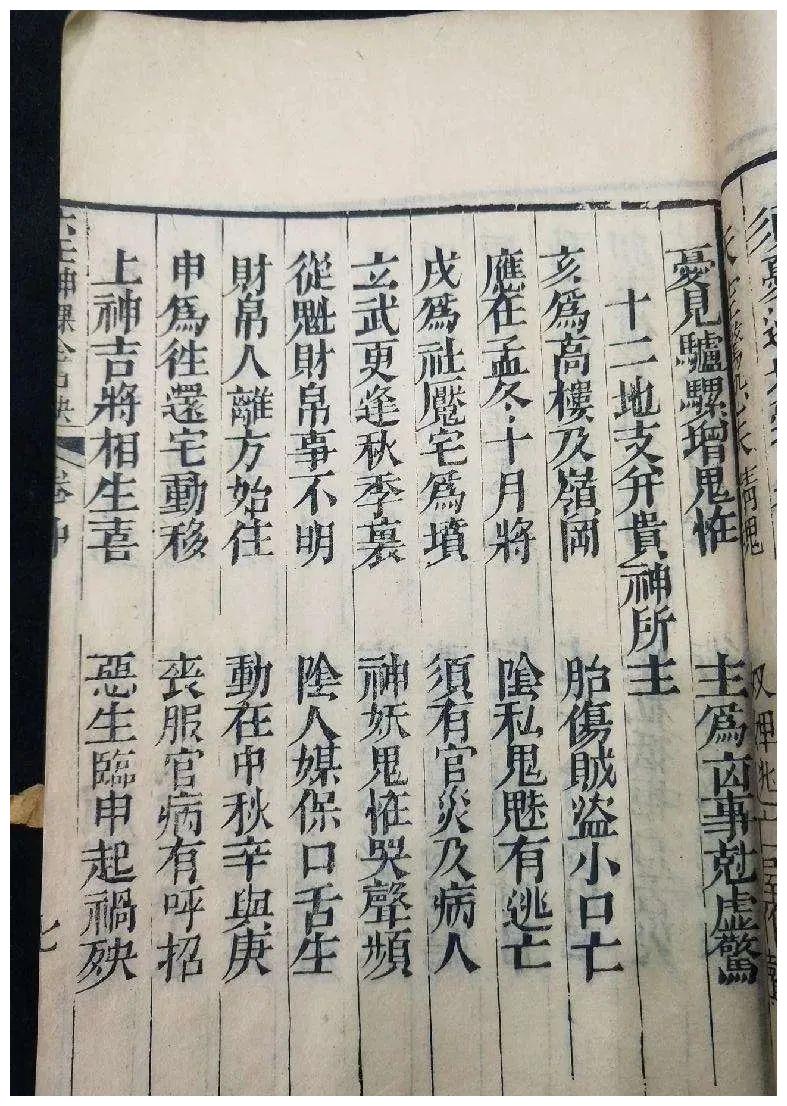 憂見驢騾增鬼恠 主為凶事尅虛驚
十二地支并貴神所主
亥為高樓及嶺岡 胎傷賊盗小口亡
應在孟冬十月將 陰私鬼魅有逃亡
戌為社厴宅為墳 須有官災及病人
玄武更逢秋季裏 神妖鬼恠哭聲頻
從魁財帛事不明 陰人媒保口舌生
財帛人離方始住 動在中秋辛與庚
申為徃還宅動移 喪服官病有呼招
上神吉將相生喜 惡生臨申起禍殃
六壬神課金口訣 卷中
七